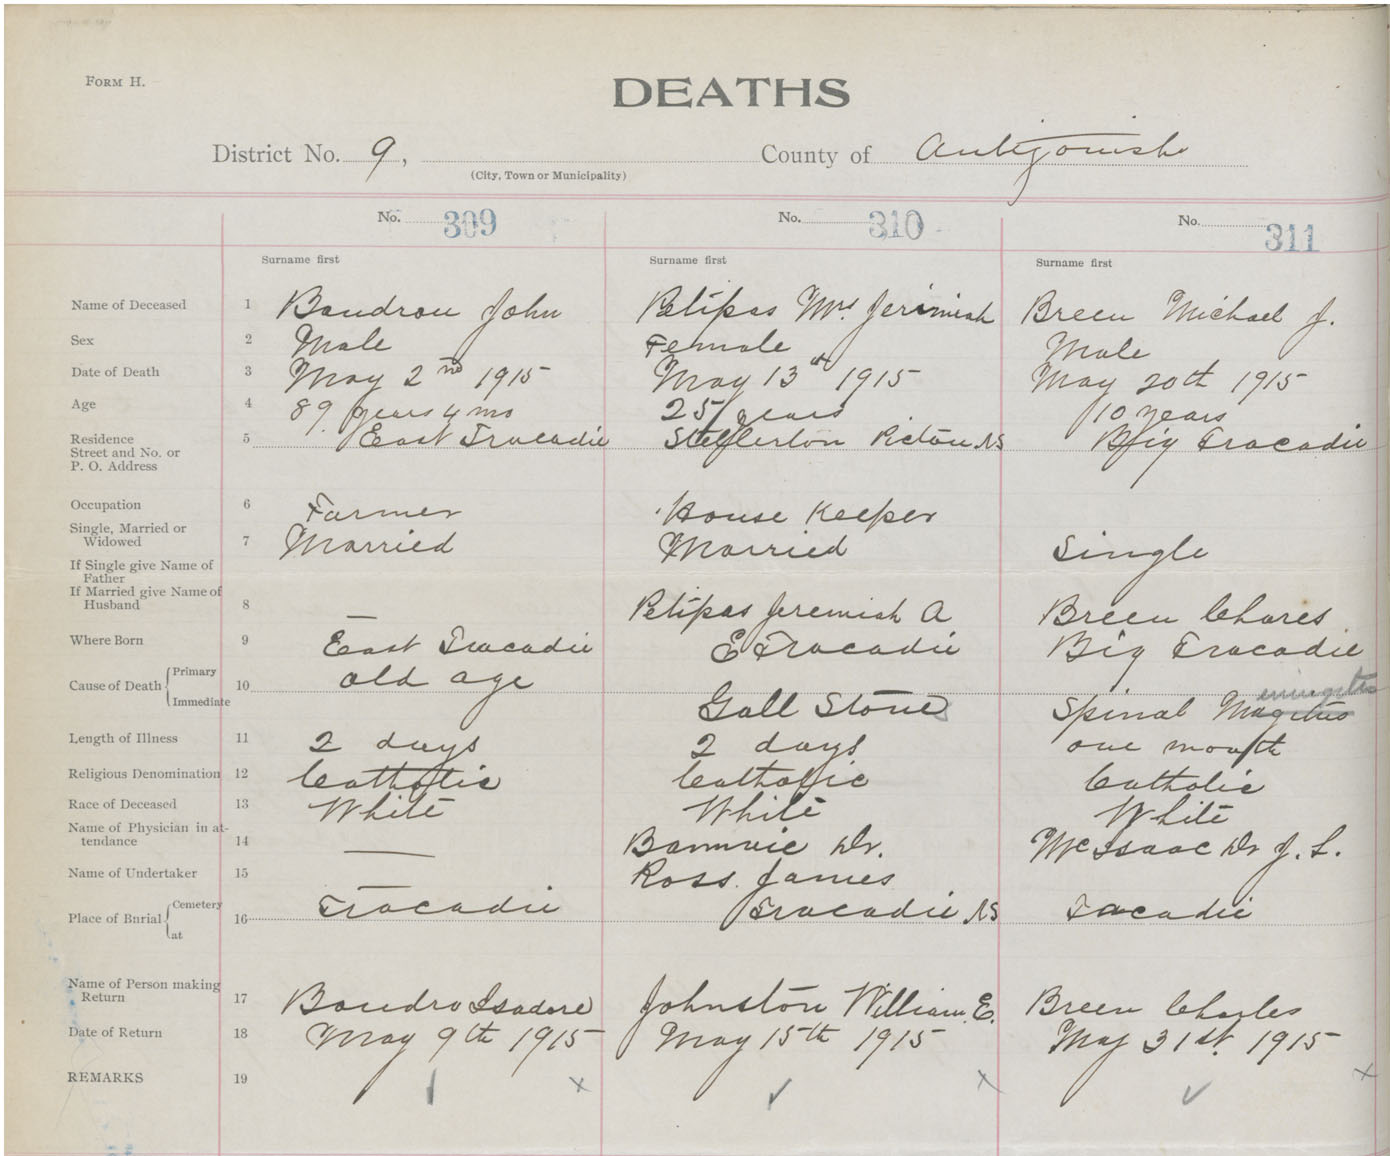 FORM H.
DEATHS
District No. 9, County of Antigonish
(City, Town or Municipality)
No. 309 No. 310 No. 311
Surname first Surname first Surname first
Name of Deceased 1 Boudrou John Petipas Mrs. Jerimiah Breen Michael J.
Sex 2 Male Female Male
Date of Death 3 May 2nd 1915 May 13th 1915 May 20th 1915
Age 4 89 years 4 mo 25 years 10 years
Residence 5 East Tracadie Stellerton Pictou NS Big Tracadie
Street and No. or
P. O. Address
Occupation 6 Farmer House Keeper
Single, Married or
Widowed 7 Married Married Single
If Single give Name of
Father
If Married give Name of
Husband 8 — Petipas Jeremiah A Breen Chares
Where Born 9 East Tracadie E Tracadie Big Tracadie
Cause of Death Primary 10 old age
Immediate Gall Stones Spinal Magitus eningitis
Length of Illness 11 2 days 2 days one month
Religious Denomination 12 Catholic Catholic Catholic
Race of Deceased 13 White White White
Name of Physician in at-
tendance 14 — Dr. McIsaac Dr J. L.
Name of Undertaker 15 — Ross. James
Place of Burial Cemetery 16 Tracadie Tracadie NS Tacadie
at
Name of Person making
Return 17 Boudro Isadore Johnston William E. Breen Charles
Date of Return 18 May 9th 1915 May 15th 1915 May 31st 1915
REMARKS 19 ✓ x ✓ x ✓ x